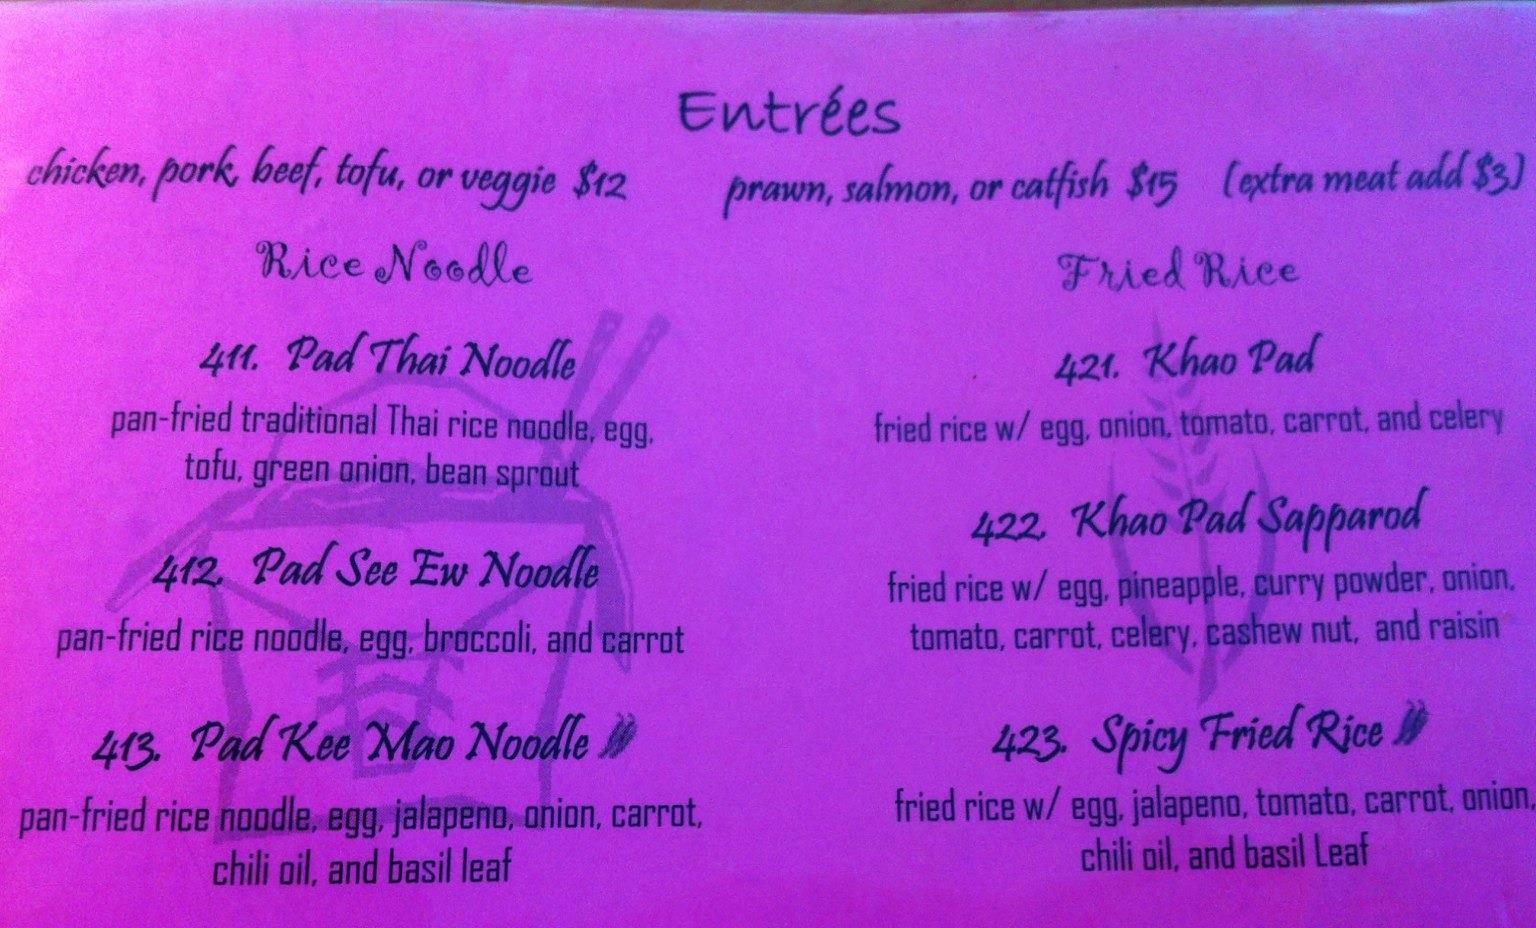 Entrées
chicken, pork, beef, tofu, or veggie $12
prawn, salmon, or catfish $15 (extra meat add $3)
Rice Noodle
411. Pad Thai Noodle
pan-fried traditional Thai rice noodle, egg,
tofu, green onion, bean sprout
412. Pad See Ew Noodle
pan-fried rice noodle, egg, broccoli, and carrot
413. Pad Kee Mao Noodle
pan-fried rice noodle, egg, jalapeno, onion, carrot,
chili oil, and basil leaf
Fried Rice
421. Khao Pad
fried rice w/ egg, onion, tomato, carrot, and celery
422. Khao Pad Sapparod
fried rice w/ egg, pineapple, curry powder, onion,
tomato, carrot, celery, cashew nut, and raisin
423. Spicy Fried Rice
fried rice w/ egg, jalapeno, tomato, carrot, onion,
chili oil, and basil Leaf